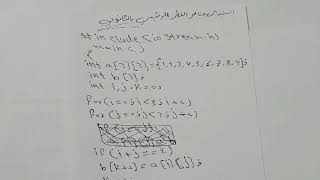 استدعاء عناصر القطر الرئيسي بالثانوي
# include <iostream.h>
main()
{
int a[3][3]={1,2,3,4,5,6,7,8,9};
int b[3];
int i,j,k=0;
for(i=0;i<3;i++)
for(j=0;j<3;j++)
if(i+j==2)
b[k++]=a[i][j];